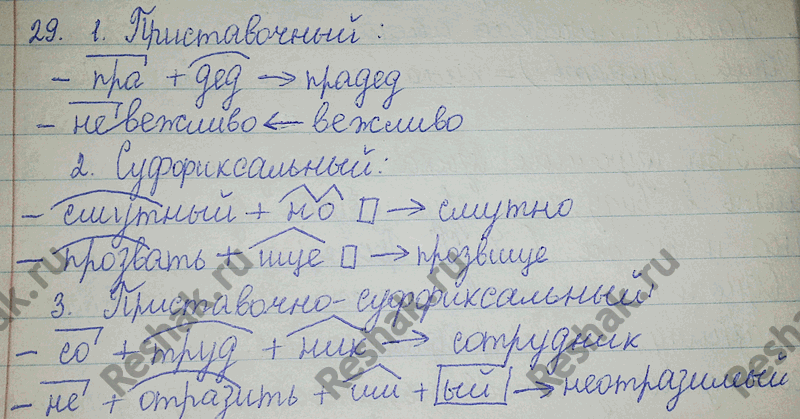 29. 1. Приставочный:
- пра + дед → прадед
- невежливо ← вежливо
2. Суффиксальный:
- смутный + но □ → смутно
- прозвать + ище □ → прозвище
3. Приставочно-суффиксальный:
- со + труд + ник → сотрудник
- не + отразить + им + ый → неотразимый
Reshak.ru
Reshak.ru
Reshak.ru
Reshak.ru